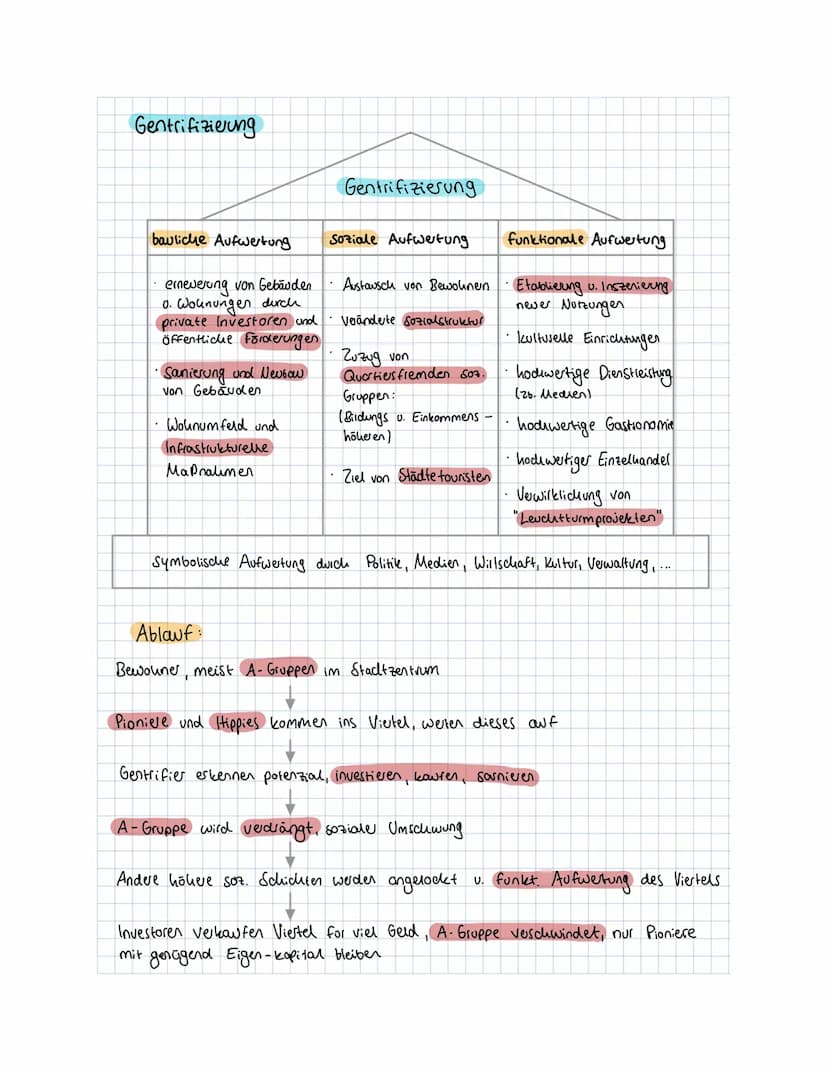 Gentrifizierung
Gentrifizierung
bauliche Aufwertung
soziale Aufwertung
funktionale Aufwertung
· erneuerung von Gebäuden
u. Wohnungen durch
private Investoren und
öffentliche Förderungen
· Sanierung und Neubau
von Gebäuden
· Wohnumfeld und
Infrastrukturelle
Maßnahmen
· Austausch von Bewohnen
· Veändete Sozialstruktur
· Zuzug von
Quartiersfremden soz.
Gruppen:
(Bildungs u. Einkommens -
höheren)
· Ziel von Städtetouristen
· Etablierung u. Inszenierung
neuer Nutzungen
· kulturelle Einrichtungen
· hochwertige Dienstleistung
(zb. Medien)
· hochwertige Gastronomie
· hochwertiger Einzelhandel
· Verwirklichung von
"Leuchtturmprojekten"
Symbolische Aufwertung durch Politik, Medien, Wirtschaft, Kultur, Verwaltung, ...
Ablauf:
Bewohner, meist A-Gruppen im Stadtzentrum
Pioniere und Hippies kommen ins Viertel, werten dieses auf
Gentrifier erkennen potenzial, investieren, kaufen, sarnieren
A-Gruppe wird verdrängt, sozialer Umschwung
Andere höhere soz. Schichten werden angelockt u. funkt. Aufwertung des Viertels
Investoren verkaufen Viertel für viel Geld, A-Gruppe verschwindet, nur Pioniere
mit genügend Eigen-kapital bleiben